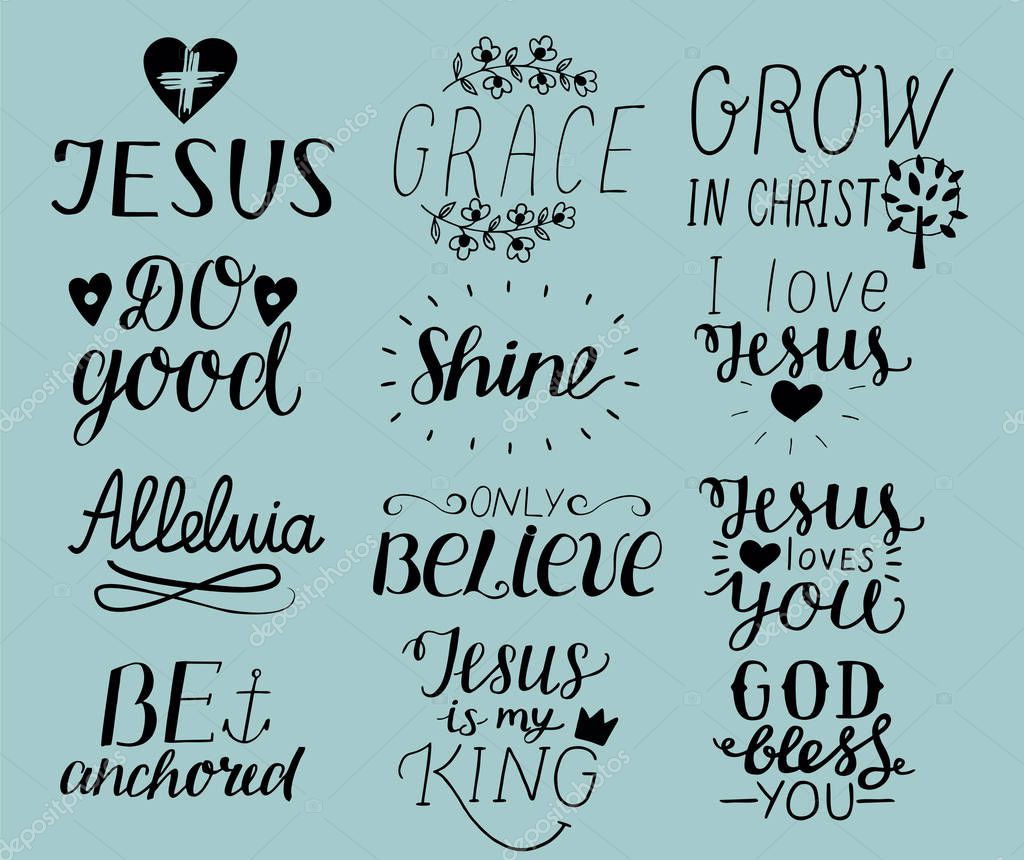 JESUS
GRACE
GROW
IN CHRIST
DO
good
Shine
I love
Jesus
Alleluia
ONLY
BELIEVE
Jesus
LOVES
you
BE
anchored
Jesus
is my
KING
GOD
bless
YOU
depositphotos